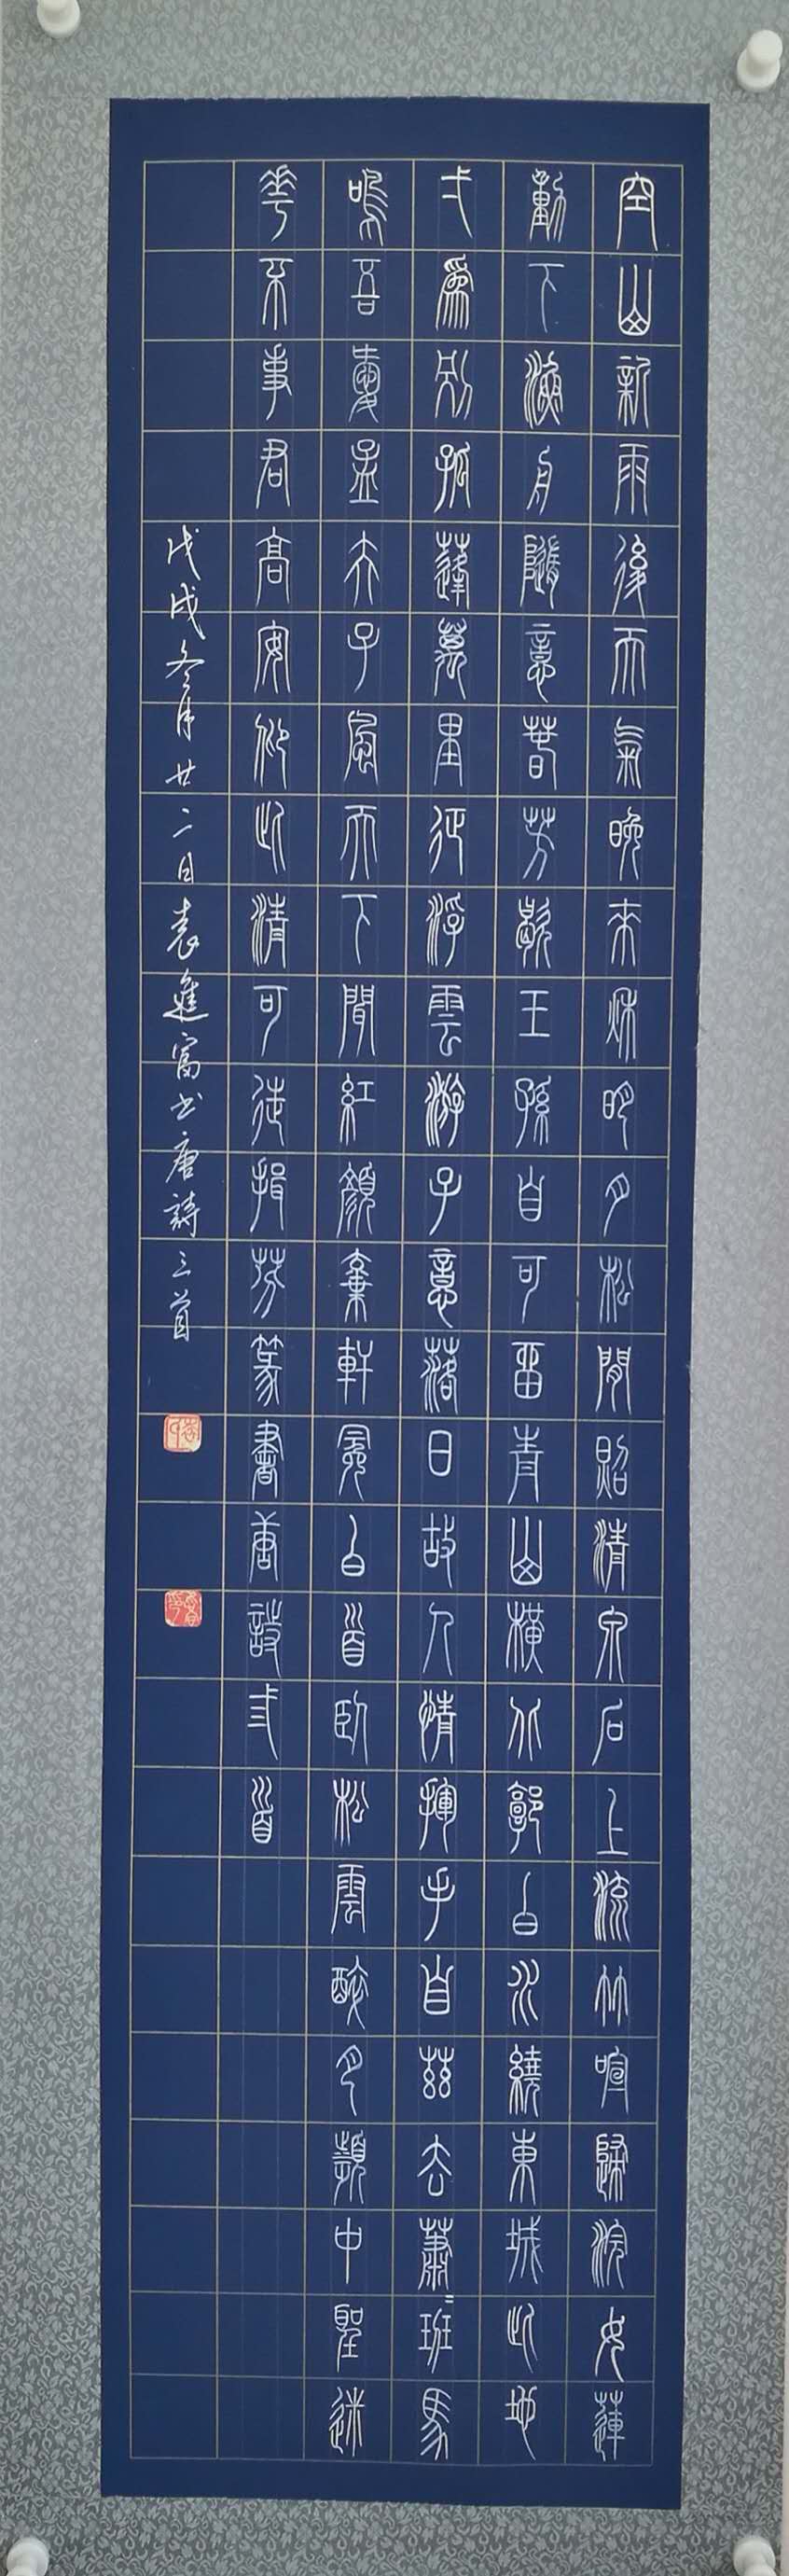 空山新雨後天氣晚來秋明月松間照清泉石上流竹喧歸浣女蓮
動下漁舟隨意春芳歇王孫自可留青山橫北郭白水繞東城此地
弌為別孤蓬萬里征浮雲游子意落日故人情揮手自茲去蕭〃班馬
鳴吾愛孟夫子風天下聞紅顏棄軒冕白首臥松雲醉月頻中聖迷
花不事君高安仰此清可徒挹芬篆書唐詩弎首
戊戌冬月廿二日袁進富书唐詩三首